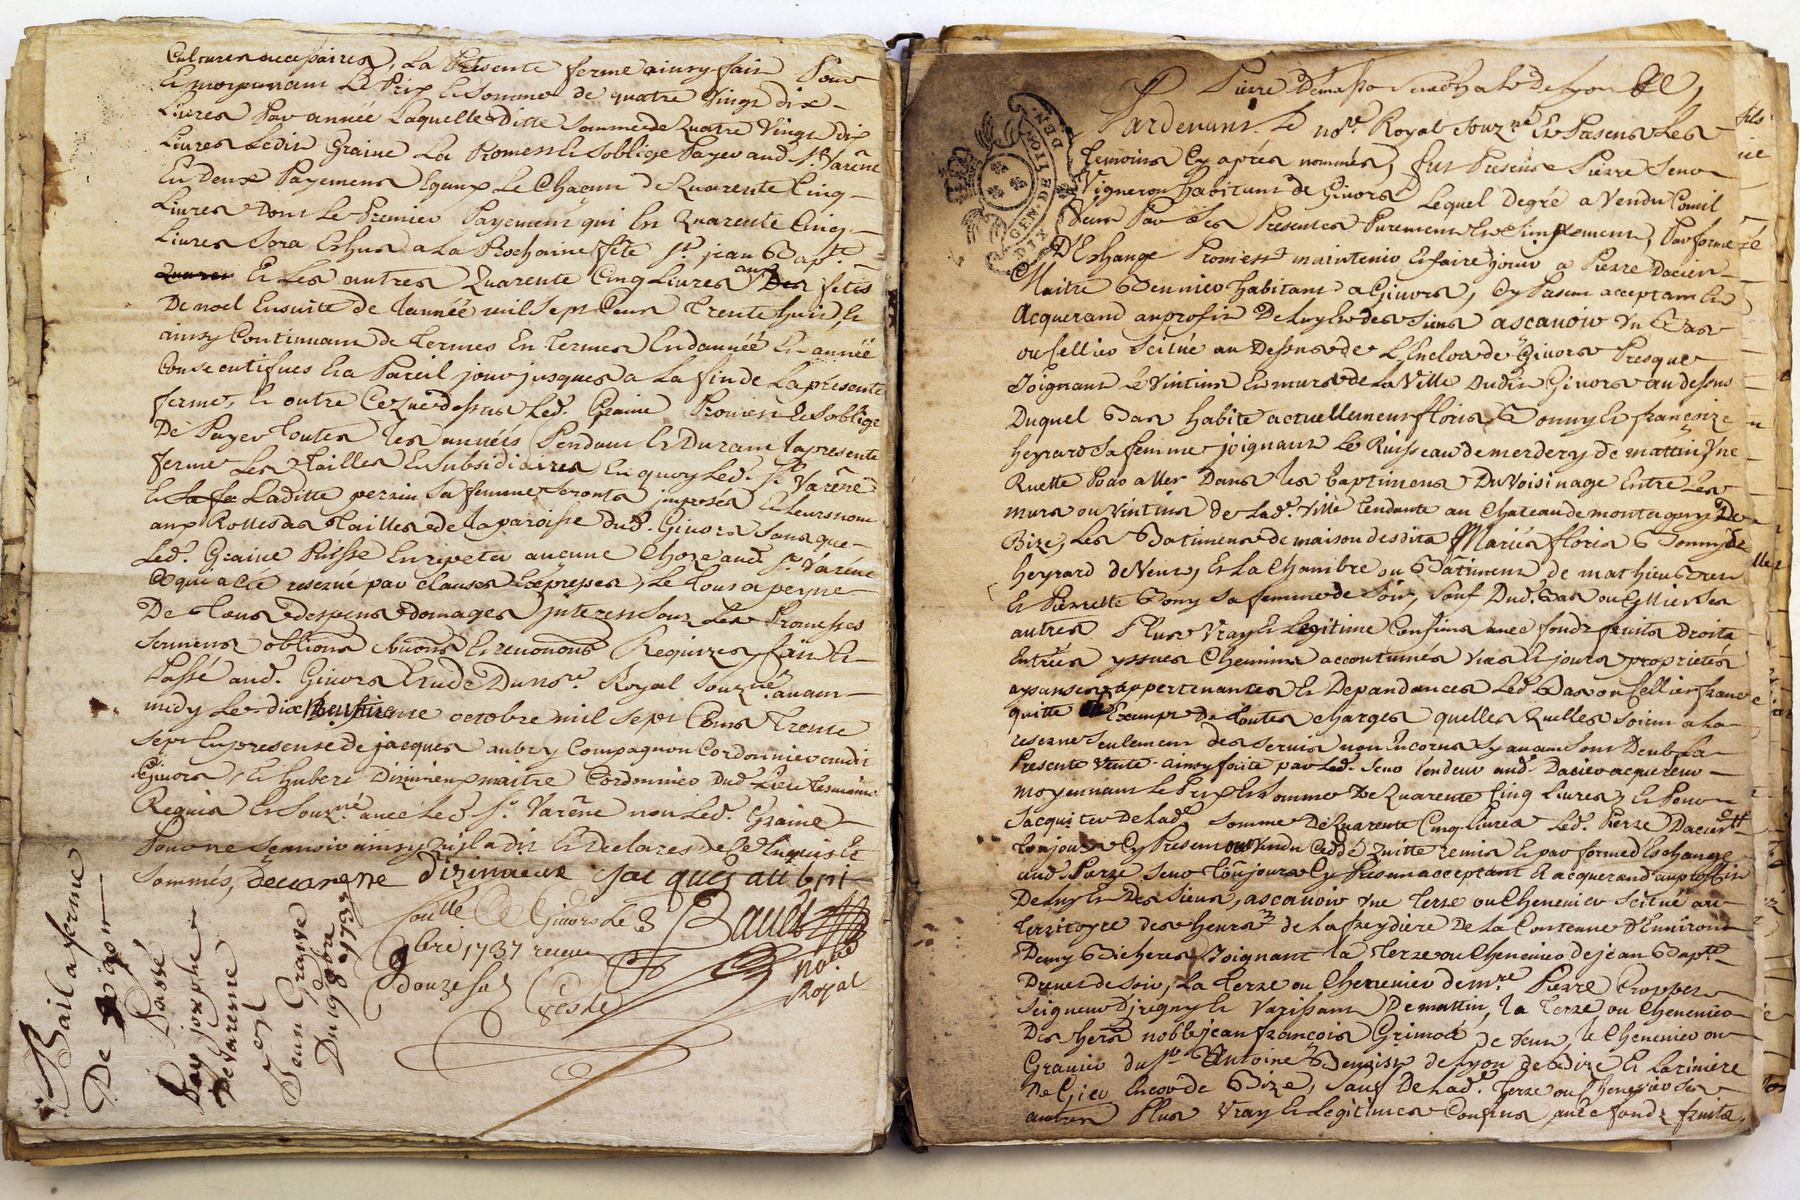 Cultures necessaires, La Présente ferme ainsy faite Pour
Et moyennant Le Prix Et Somme de quatre Vingt dix
Livres Par année Laquelle Ditte Somme de Quatre Vingt dix
Livres Ledit Graine La Promest Et Soblige Payer aud. Sr. Varêne
En Deux Payemens Egaux Le Chacun de Quarente Cinq
Livres Dont Le Premier Payement qui En Quarente Cinq
Livres Sera Eshus a La Prochaine fête St. jean Bapte
Et Les autres Quarente Cinq Livres aux fêtes
De noel Ensuitte de lannéé mil Sept Cens Trente huit Et
ainsy Continuant de Termes En Termes Et dannéé En annéé
Consecutifves Et a Pareil jour jusques a La fin de La présente
ferme, Et outre Ce que dessus Led. Graine Promest Et Soblige
De Payer Toutes Les annéés Pendant Et Durant la presente
ferme Les Tailles Et Subsidiaires En quoy Led. Sr. Varêne
Et Laditte perrin Sa femme Seronts imposés En Leurs nom
aux Rolles des Tailles de la paroisse dud. Givors Sans que
Led. Graine Puisse En repeter aucune Choze aud. Sr. Varêne
Ce qui a été reservé par Clauses Expresses, Le Tout a peyne
De Tous despens domages jnterest Sous Les Promesses
Sermens obligons Et renonons Requizes, fait Et
Passé aud. Givors Etude Du nore. Royal Souzné avant
midy Le dix huitieme octobre mil Sept Cens Trente
Sept En presense de jacques aubry Compagnon Cordonnier audit
Givors, Et hubert Diziirieux maitre Cordonnier Dud. Lieu Tesmoins
Requis Et Souz.nés avec Le Sr. Varêne non Led. Graine
Pour ne Scavoir ainsy quil a dit Et declaré de Ce Enquis Et
Sommés, Devarenne jacques aubri
Conllé a Givors Le 3
9bre 1737 receu
douze Sols
Baudet
notre
Royal
Bail a ferme
De
Passé
Par joseph
De Varenne
Jean Grayne
Du 19 8bre
1737
Pardevant Le nore. Royal Souz.né Et Presens Les
Temoins Cy aprés nommés, fut Present Pierre Seno
Vigneron habitant de Givors Lequel Degré a Vendu Comil
Vent Par Ses Presentes Purement Et Simplement, Par forme
D'Eschange Promest maintenir Et faire jouir a Pierre Dacier
Maitre Bennier habitant a Givors, Cy Present acceptant Et
Acquerand au profit De Luy Et des Siens ascavoir Un Bas
ou Sellier Scitué au Dessus de L'Enclos de Givors Presque
Joignant Le Vintin Et murs de La Ville dudit Givors au dessus
Duquel Bas habite actuellement floris Bonny Et françoize
heyrard Sa femme joignant Le Ruisseau de merdery de mattin, Une
Ruette Pour aller Dans les baptimens Du Voisinage Entre Les
murs ou Vintins de Lad. Ville Tendante au Chateau de montagny De
Bize, Les Batimens de maison desdits Mariés floris Bonny Et
heyrard de Vent, Et La Chambre ou Batiment de mathieu
Et Pierrette Bony Sa femme de Soir, Sauf Dud. Bas ou Cellier Ses
autres Plus Vray Et Legitime Confins avec fondz fruits Droits
Entrées yssues Chemins accoutumés Vues Et jours proprietés
aysances appertenances Et Depandances Led. Bas ou Sellier franc
quitte Exempt De Toutes Charges quelles Quelles Soient a La
reserve Seulement des Servis non Encorus Sy aucuns Sont Deub La
Presente Vente ainsy faite par Led. Seno Vendeur aud. Dacier acquereur
moyennant Le Prix Et Somme De Quarente Cinq Livres, Et Pour
Sacquiter de Lad. Somme De Quarente Cinq Livres Led. Pierre Dacier
Toujours Cy Present Vendu Ceddé Quitte remis Et par forme d'Eschange
aud. Pierre Seno Toujours Cy Present acceptant Et acquerand au proffit
De Luy Et Des Siens, ascavoir Une Terre ou Chenevier Scitué au
Territoyre des heurs de La freydiere De La Contenue D'Environ
Demy Bicheree Joignant la Terre ou Chenevier de jean Bapte.
de soir, La Terre ou Chenevier de mre. Pierre
Seigneur D'jrigny Et Varissant De mattin, la Terre ou Chenevier
Des hers noble jean françois Grimod de Vent, le Chenevier ou
Gravier du Sr. Antoine Benoist de Lyon de Bize Et La riviere
De Gier Encor de Bize, Sauf De Lad. Terre ou Chenevier Ses
autres Plus Vray Et Legitimes Confins avec fondz fruits,
GEN. DE LION
DIX DEN.